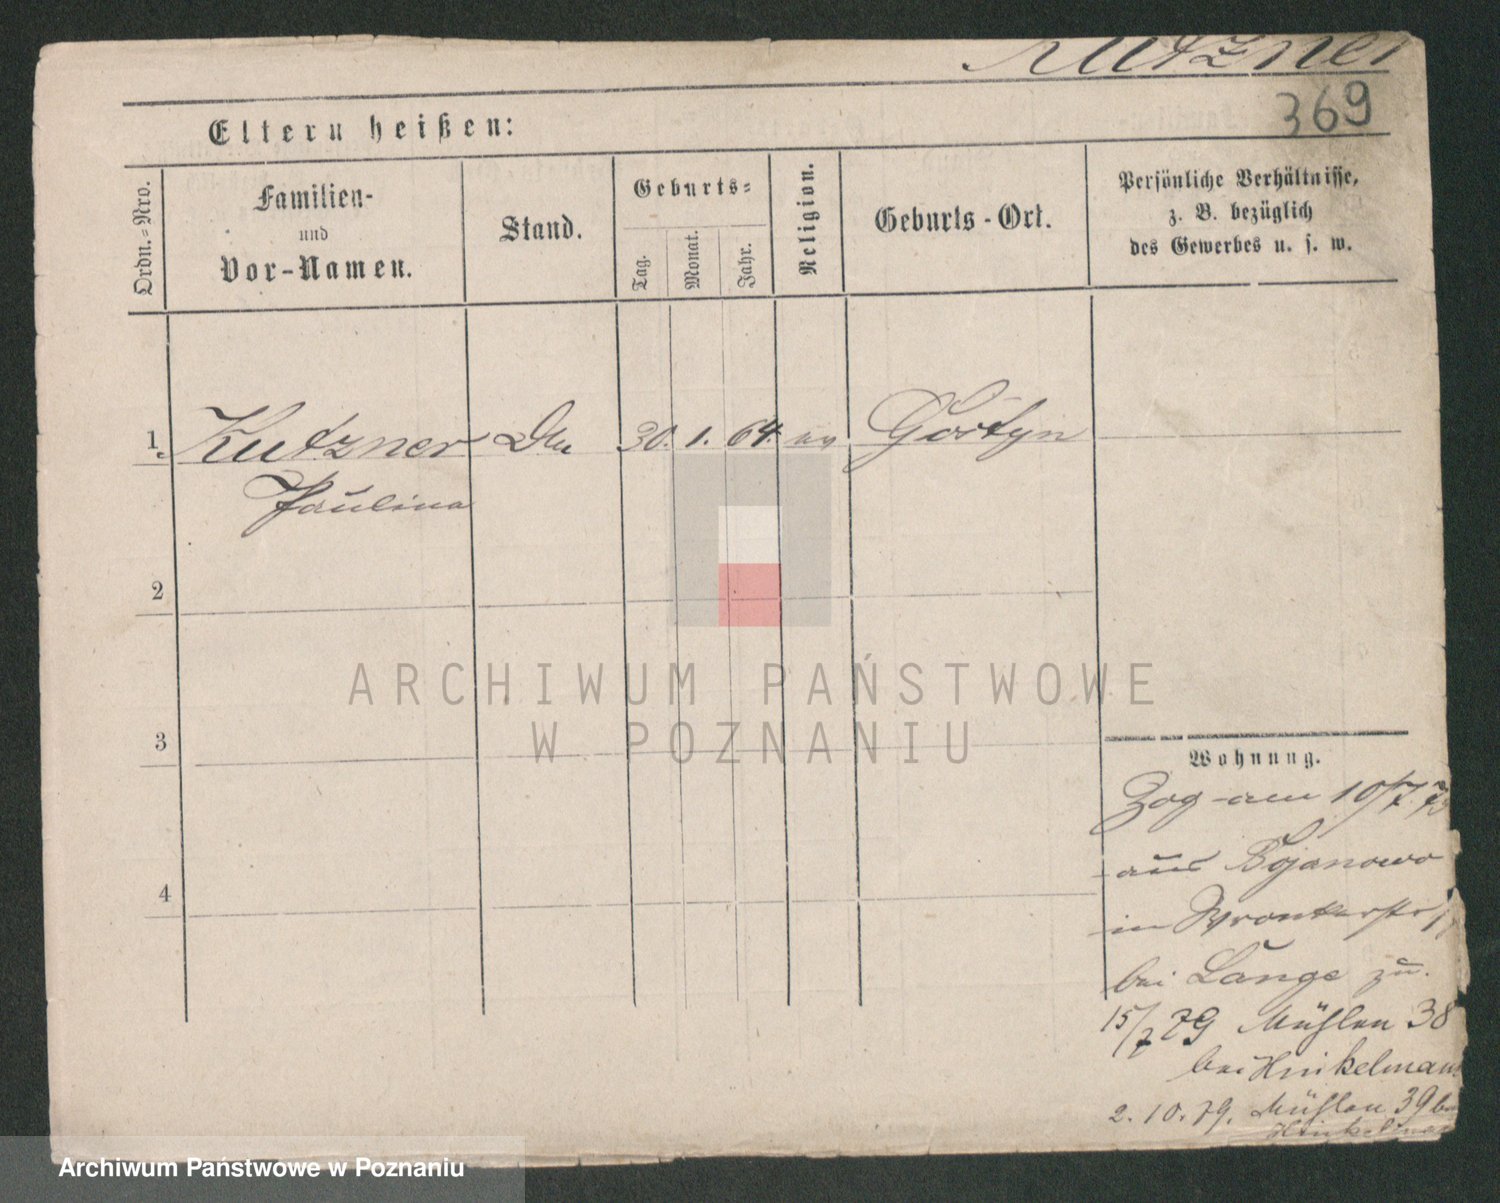 Kutzner
369
Eltern heißen:
Ordn.-Nro.
Familien-
und
Vor-Namen.
Stand.
Geburts-
Tag.
Monat.
Jahr.
Religion.
Geburts-Ort.
Persönliche Verhältnisse,
z. B. bezüglich
des Gewerbes u. s. w.
1. Kutzner 30. 1. 64. ev Gostyn
Paulina
2
3
4
ARCHIWUM PAŃSTWOWE
W POZNANIU
Wohnung.
Zog am 10/7.
aus Bojanowo
in Wronkerstr
bei Lange zu.
15/7 79 Mühlen 38
bei Hinkelmann
2. 10. 79. Mühlen 39 bei
Hinkelman
Archiwum Państwowe w Poznaniu